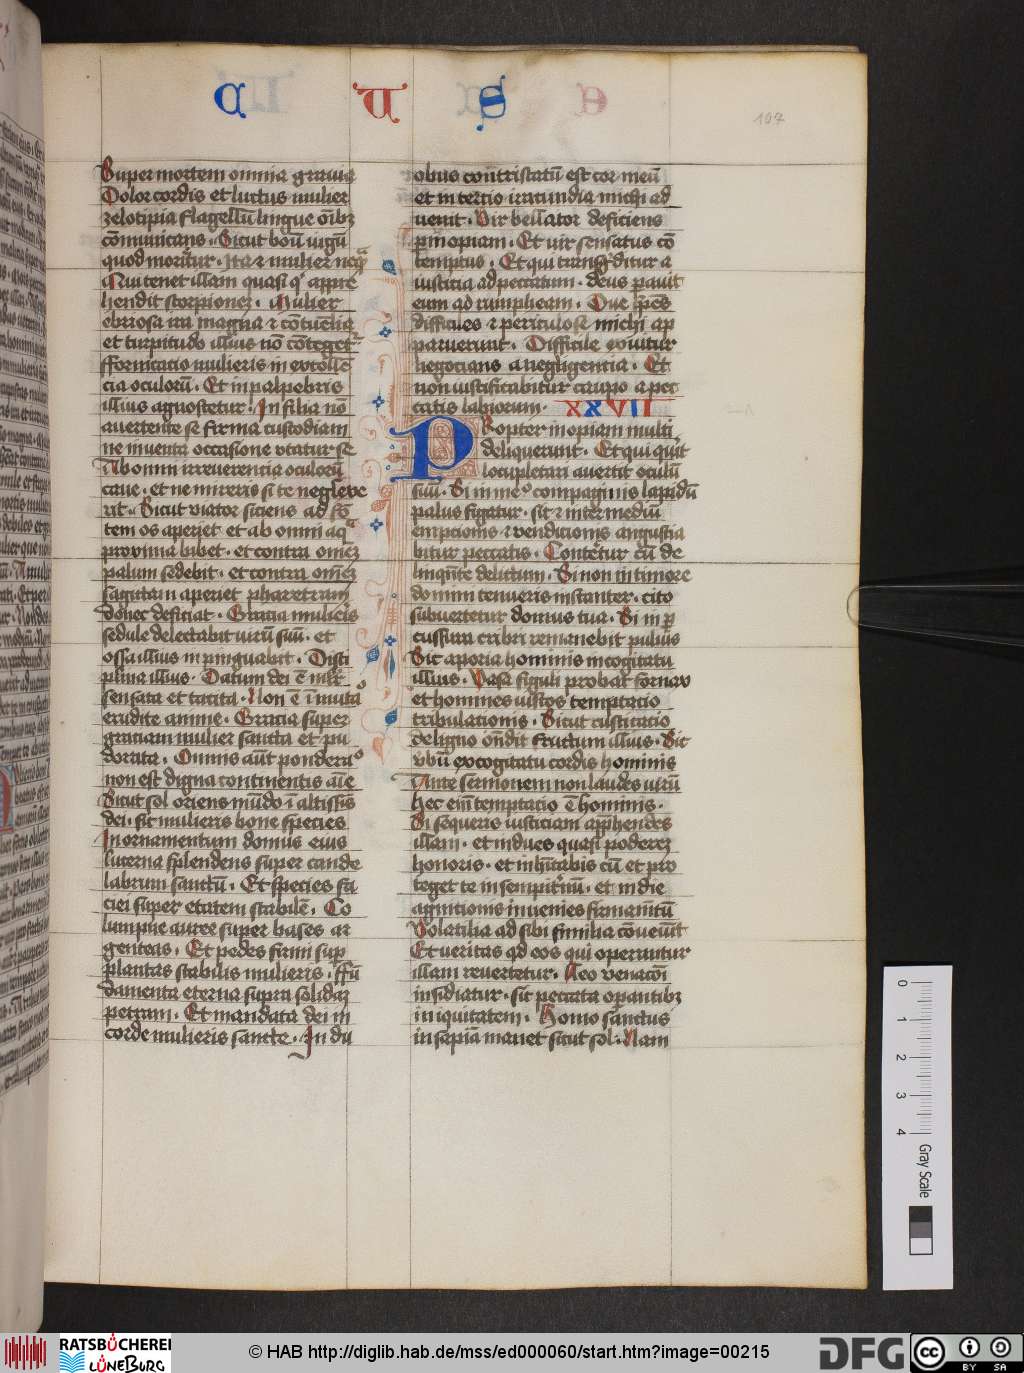 C U S
107
Super mortem omnia grauia
Dolor cordis et luctus mulier
zelotipia flagellū lingue oībꝫ
cōmunicans . Sicut boū iugū
quod mouetur . Ita ⁊ mulier neqͣ
Qui tenet illam quasi qͥ appre
hendit scorpionem . Mulier
ebriosa ira magna ⁊ cōtumelia
et turpitudo illius nō cōtegetᷣ
fformicatio mulieris in extollē
cia oculorū . Et in palpebris
illius agnoscetur . In filia nō
auertente se firma custodiam
ne inuenta occasione vtatur se
Ab omni irreuerencia oculorū
caue . et ne mireris si te neglexe
rit . Sicut viator siciens ad fō
tem os aperiet et ab omni aqͣ
proxima bibet . et contra omēꝫ
palum sedebit . et contra omēꝫ
sagittam aperiet pharetram
donec deficiat . Gracia mulieris
sedule delectabit uirū suū . et
ossa illius inpinguabit . Disci
plina illius . Datum dei ē mlr̄
sensata et tacita . Non ē īmutaͦ
erudite anime . Gracia super
graciam mulier sancta et pu
dorata . Omnis aūt ponderaͦ
non est digna continentis aīe
Sicut sol oriens mūdo ī altissīs
dei . sic mulieris bone species
In ornamentum domus eius
lucerna splendens super cande
labrum sanctū . Et species fa
ciei super etatem stabilē . Co
lumpne auree super bases ar
genteas . Et pedes firmi suꝑ
plantas stabilis mulieris . ffū
damenta eterna supra solidaꝫ
petram . Et mandata dei in
corde mulieris sancte . In du
obus contristatū est cor meū
et in tercio iracundia michi ad
uenit . Vir bellator deficiens
ꝑ inopiam . Et vir sensatus cō
temptus . Et qui transgditur a
iusticia ad peccatum . deus parauit
eum ad rumpheam . Due spēs
difficiles ⁊ periculose michi ap
paruerunt . Difficile exuitur
negocians a negligencia . Et
non iustificabitur caupo a pec
catis labiorum . XXVII
Propter inopiam multi
deliquerunt . Et qui querit
locupletari auertit oculū
suū . Si in meͦ compaginis lapidū
palus figatur . sic ⁊ inter mediū
empcionis ⁊ vendicionis angustia
bitur peccatis . Conteretur cū de
linquēte delictum . Si non in timore
domini tenueris instanter . cito
subuertetur domus tua . Si in ꝑ
cussura cribri remanebit puluis
Sic aporia hominis in cogitatu
illius . Vasa figuli probat fornax
et homines iustos temptacio
tribulacionis . Sicut rusticacio
de ligno ondit fructum illius . Sic
vbū ex cogitatu cordis hominis
Ante sermonem non laudes uirū
hec em temptacio ē hominis .
Si sequeris iusticiam apphendes
illam . et indues quasi poderem
honoris . et inhitabis cū et pro
teget te in sempiternū . et in die
agnicionis inuenies firmamtū
Volatilia ad sibi similia cōueniūt
Et ueritas ad eos qui operantur
illam reuertetur . Leo venacōi
insidiatur . sic peccata opantibꝫ
iniquitatem . Homo sanctus
in sapiā manet sicut sol . Nam
0 1 2 3 4 Gray Scale
RATSBÜCHEREI LÜNEBURG
© HAB http://diglib.hab.de/mss/ed000060/start.htm?image=00215
DFG
cc BY SA